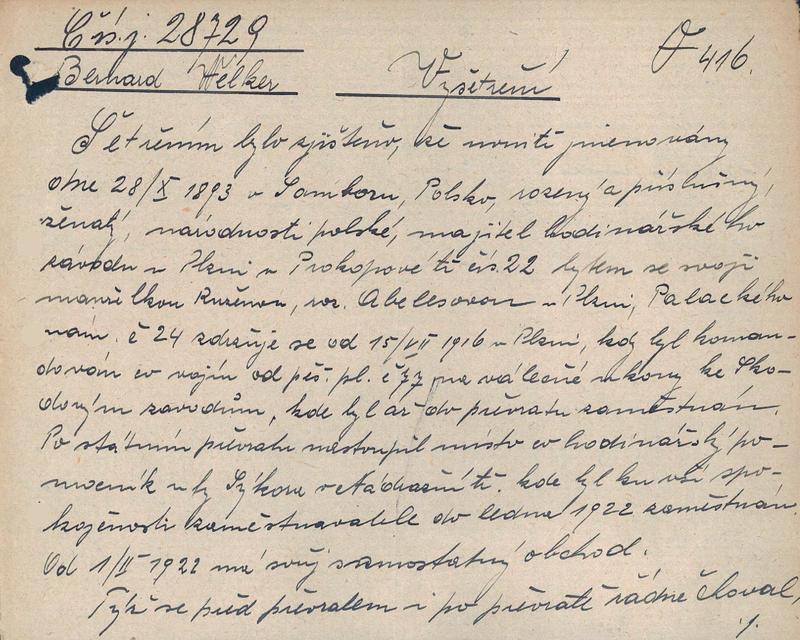 Čís. j. 28729
Bernard Welker Vyšetření F 416.
Šetřením bylo zjištěno, že nvnitř jmenovaný
dne 28/X 1893 v Samboru, Polsko, rozený a příslušný,
ženatý, národnosti polské, majitel hodinářského
závodu v Plzni v Prokopově tř čís. 22 bytem se svojí
manželkou Ruženou, roz. Abelesovou v Plzni, Palackého
nám. č 24 zdržuje se od 15/VII 1916 v Plzni, kdy byl koman-
dován co vojín od pěš. pl. č 77 na válečné úkony ke Ško-
dovým závodům, kde byl až do převratu zaměstnán.
Po státním převratu nastoupil místo co hodinářský po-
mocník u fy Sýkora v Nádražní tř. kde byl ku vší spo-
kojenosti zaměstnavatele do ledna 1922 zaměstnán.
Od 1/II 1922 má svůj samostatný obchod.
Týž se před převratem i po převratě řádně choval,
./.